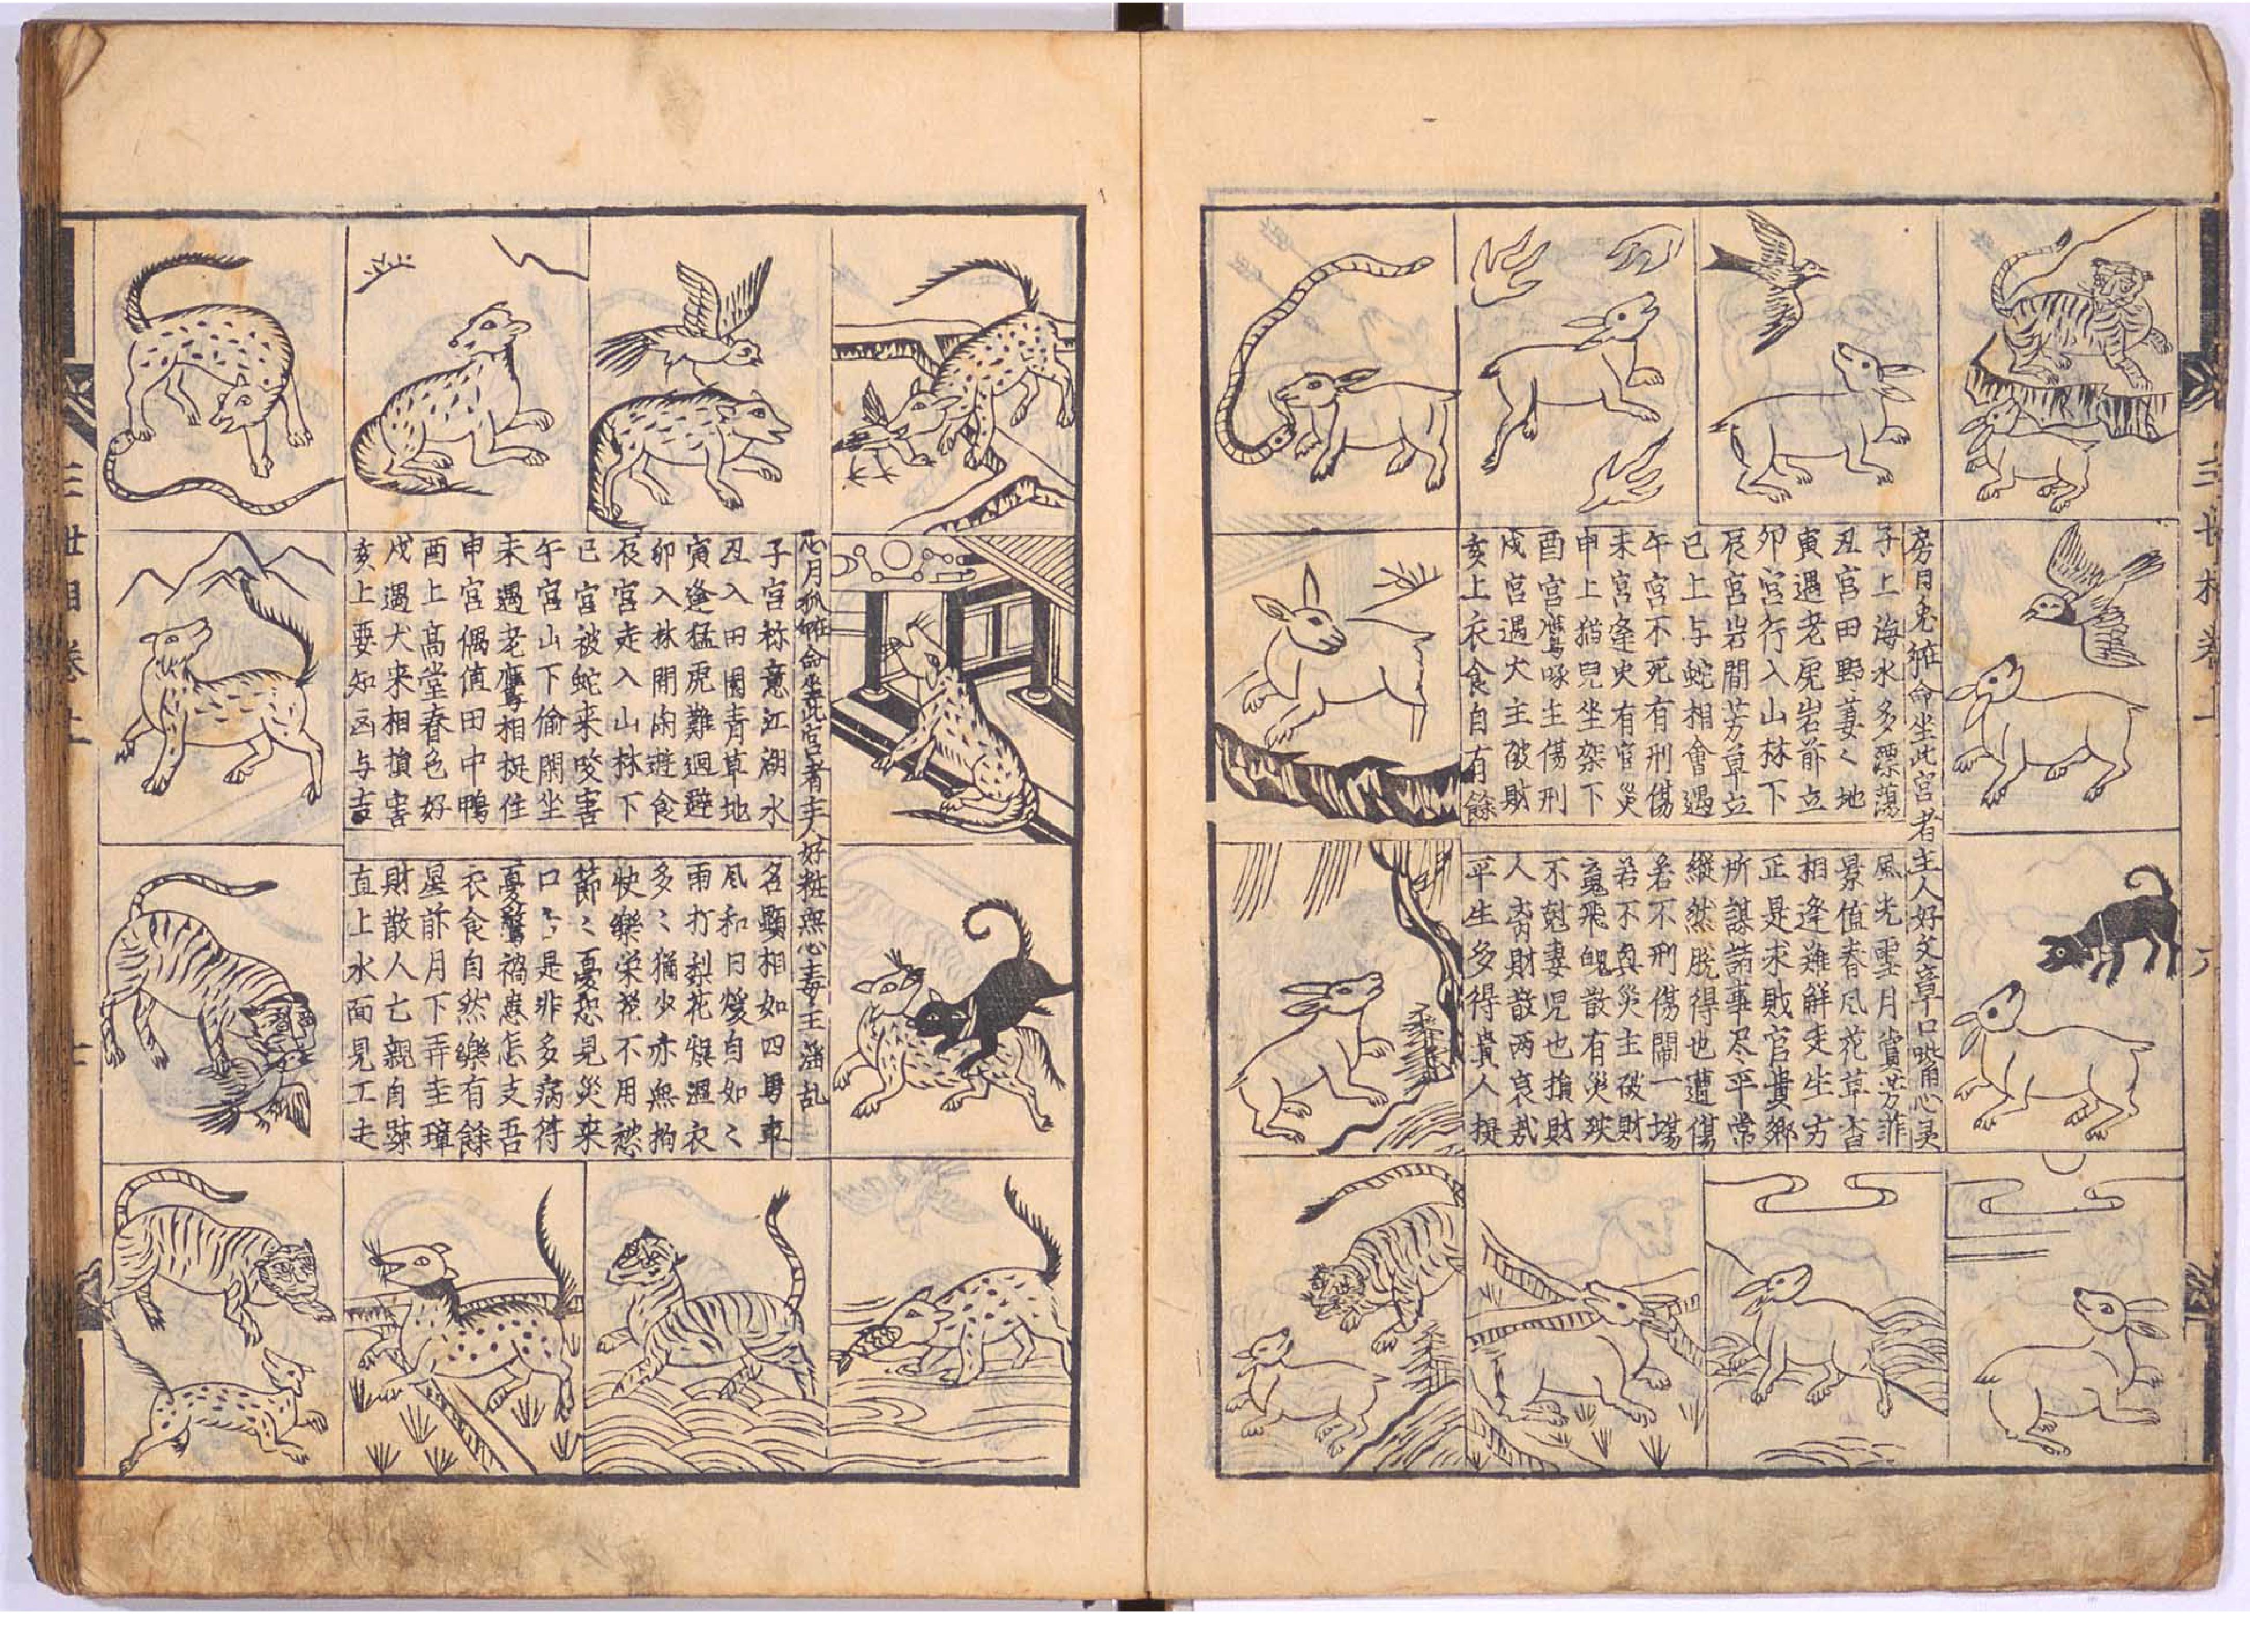 三世相卷上
房日兎 命坐此宮者主人好文章口 心灵
子上海水多漂蕩
丑宮田野萋〻地
寅遇老虎岩前立
卯宮行入山林下
辰宮岩間芳草立
巳上与蛇相會遇
午宮不死有刑傷
未宮逢火有官災
申上猫兒坐架下
酉宮鷹啄主傷刑
戌宮遇犬主破財
亥上衣食自有餘
風光雪月賞芳菲
景值春風花草香
相逢難解走生方
正是求財官貴鄉
所謀諸事尽平常
縱然脫得也遭傷
若不刑傷鬧一場
若不 災主破財
䰟飛魄散有災殃
不尅妻児也損財
人 財散两哀哉
平生多得貴人提
心月狐 命坐此宮者主人好粧無心毒主 乱
子宮称意江湖水
丑入田園青草地
寅逢猛虎難迴避
卯入林間 遊食
辰宮走入山林下
巳宮被蛇来咬害
午宮山下偷閑坐
未遇老鷹相捉住
申宮偶值田中鴨
酉上高堂春色好
戌遇犬来相損害
亥上要知凶与吉
名顯相如四馬車
風和日煖自如〻
雨打梨花 濕衣
多〻猶少亦無拘
快樂栄花不用愁
節〻憂愁見災来
口〻是非多病符
憂驚禍患怎支吾
衣食自然樂有餘
星前月下弄圭璋
財散人亡親自踈
直上水面見工夫
三世相卷上